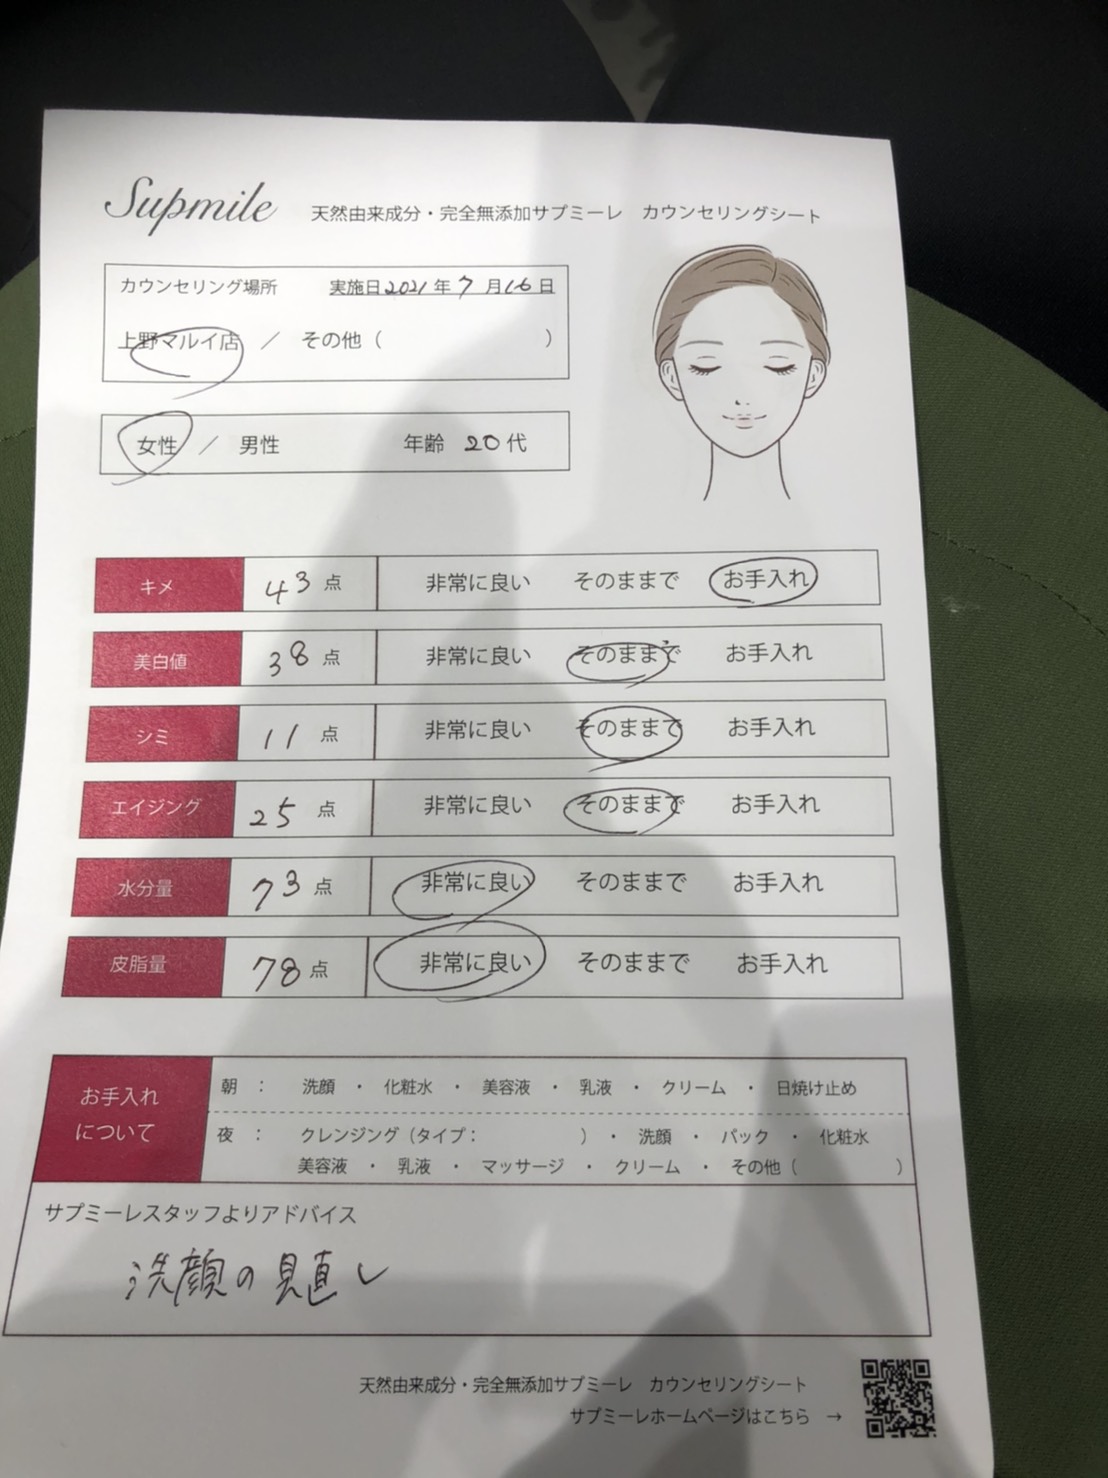 Supmile 天然由来成分・完全無添加サプミーレ カウンセリングシート
カウンセリング場所 実施日2021年7月16日
上野マルイ店 ／ その他（ ）
女性 ／ 男性 年齢 20代
キメ 43点 非常に良い そのままで お手入れ
美白値 38点 非常に良い そのままで お手入れ
シミ 11点 非常に良い そのままで お手入れ
エイジング 25点 非常に良い そのままで お手入れ
水分量 73点 非常に良い そのままで お手入れ
皮脂量 78点 非常に良い そのままで お手入れ
お手入れ
について
朝 ： 洗顔 ・ 化粧水 ・ 美容液 ・ 乳液 ・ クリーム ・ 日焼け止め
夜 ： クレンジング（タイプ： ）・ 洗顔 ・ パック ・ 化粧水
美容液 ・ 乳液 ・ マッサージ ・ クリーム ・ その他（ ）
サプミーレスタッフよりアドバイス
洗顔の見直し
天然由来成分・完全無添加サプミーレ カウンセリングシート
サプミーレホームページはこちら →